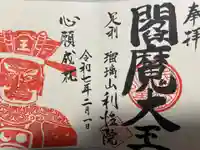 奉拝
閻魔大王
足利 瑠璃山利性院
令和七年二月一日
心願成就